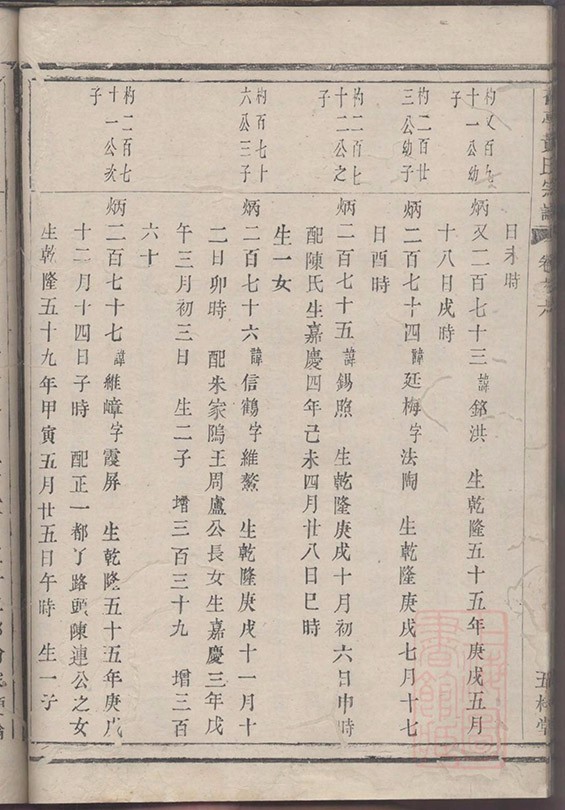 黃氏宗譜
日未時
十一公幼子
炳又二百七十三諱鄒洪 生乾隆五十五年庚戌五月
十八日戌時
杓二百廿三公幼子
炳二百七十四諱廷梅字法陶 生乾隆庚戌七月十七
日酉時
杓二百七十二公之子
炳二百七十五諱錫照 生乾隆庚戌十月初六日申時
配陳氏生嘉慶四年己未四月廿八日巳時
生一女
杓百七十六公三子
炳二百七十六諱信鶴字維鰲 生乾隆庚戌十一月十
二日卯時 配朱家隝王周盧公長女生嘉慶三年戊
午三月初三日 生二子 增三百三十九 增三百
六十
杓二百七十一公次子
炳二百七十七諱維嶂字霞屏 生乾隆五十五年庚戌
十二月十四日子時 配正一都了路頭陳連公之女
生乾隆五十九年甲寅五月廿五日午時 生一子